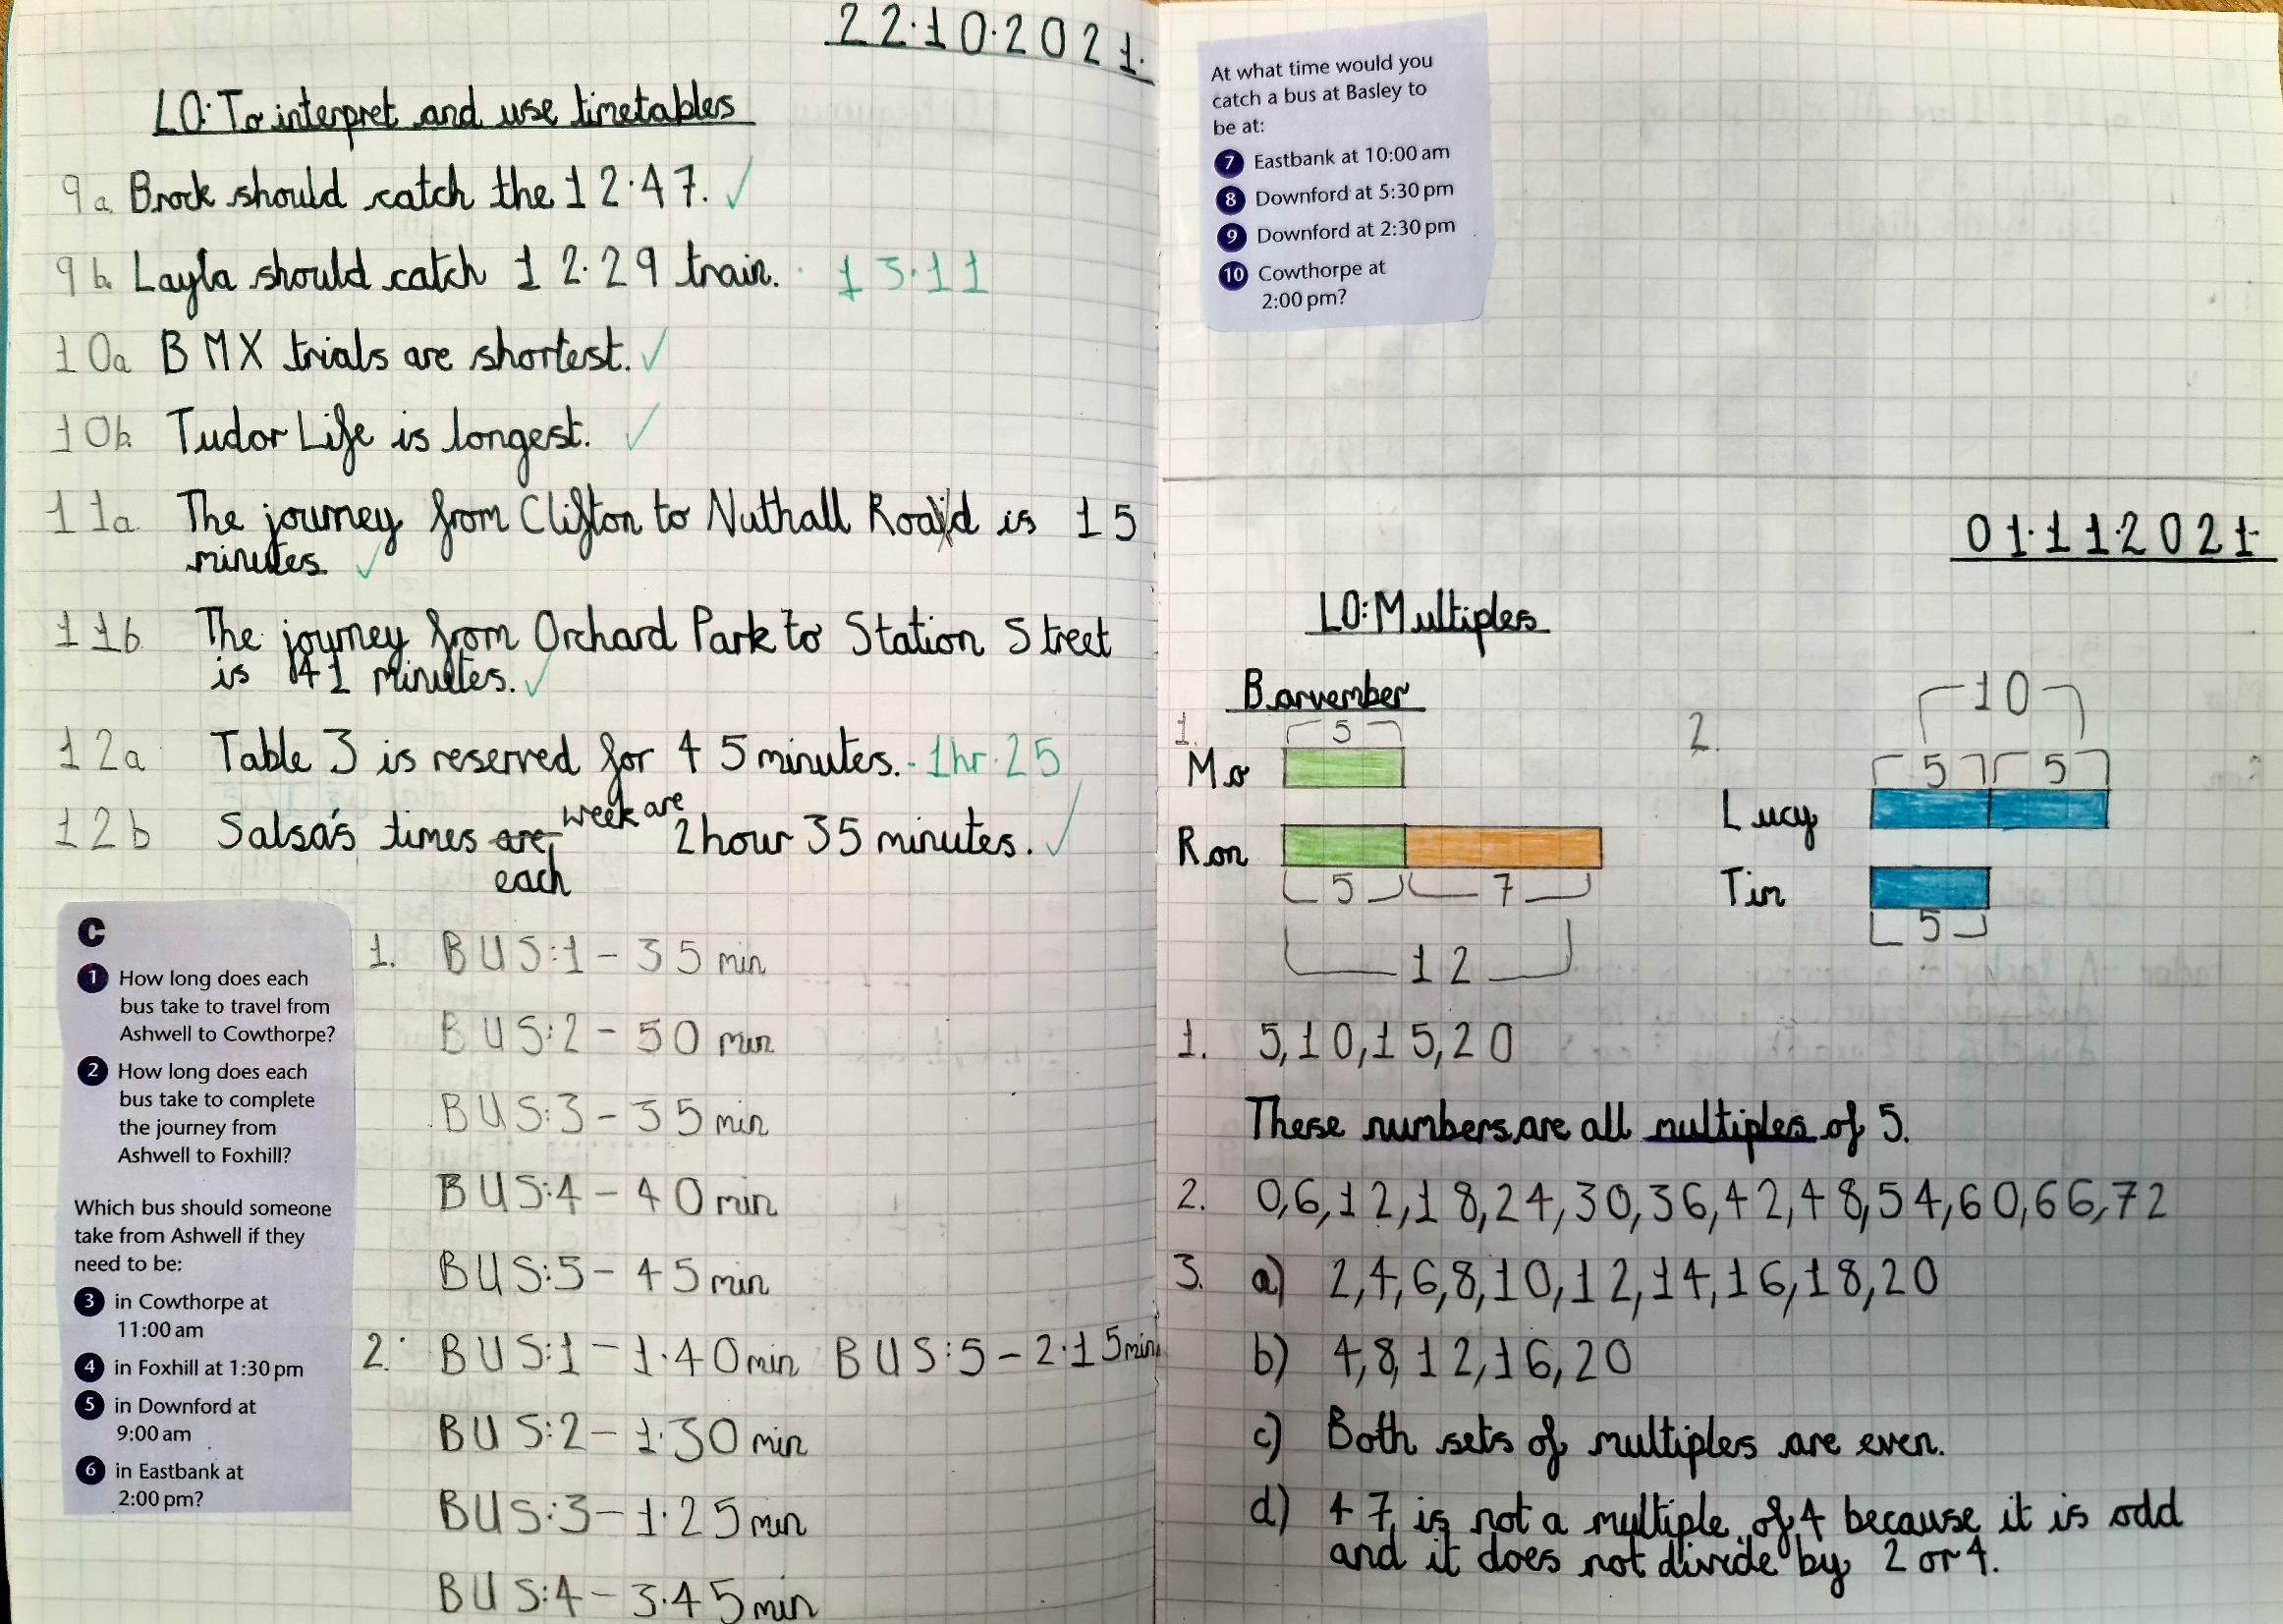 22.10.2021.
LO: To interpret and use timetables
9a Brock should catch the 12.47. ✓
9b. Layla should catch 12.29 train. · 13.11
10a BMX trials are shortest. ✓
10b. Tudor Life is longest. ✓
11a The journey from Clifton to Nuthall Road is 15
minutes. ✓
11b The journey from Orchard Park to Station Street
is 41 minutes. ✓
12a Table 3 is reserved for 45 minutes. · 1hr.25
12b Salsa's times are each week are 2 hour 35 minutes. ✓
C
1 How long does each
bus take to travel from
Ashwell to Cowthorpe?
2 How long does each
bus take to complete
the journey from
Ashwell to Foxhill?
Which bus should someone
take from Ashwell if they
need to be:
3 in Cowthorpe at
11:00 am
4 in Foxhill at 1:30 pm
5 in Downford at
9:00 am
6 in Eastbank at
2:00 pm?
1. BUS:1 – 35 min
BUS:2 – 50 min
BUS:3 – 35 min
BUS:4 – 40 min
BUS:5 – 45 min
2. BUS:1 – 1.40 min BUS:5 – 2.15 min
BUS:2 – 1.30 min
BUS:3 – 1.25 min
BUS:4 – 3.45 min
At what time would you
catch a bus at Basley to
be at:
7 Eastbank at 10:00 am
8 Downford at 5:30 pm
9 Downford at 2:30 pm
10 Cowthorpe at
2:00 pm?
01.11.2021.
LO: Multiples
Barvember
1.
5
Mo
Ron
5 7
12
2.
10
5 5
Lucy
Tim
5
1. 5, 10, 15, 20
These numbers are all multiples of 5.
2. 0, 6, 12, 18, 24, 30, 36, 42, 48, 54, 60, 66, 72
3. a) 2, 4, 6, 8, 10, 12, 14, 16, 18, 20
b) 4, 8, 12, 16, 20
c) Both sets of multiples are even.
d) 47 is not a multiple of 4 because it is odd
and it does not divide by 2 or 4.